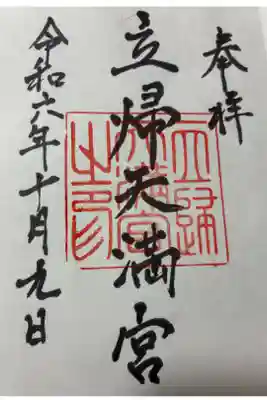 奉拝
立帰天満宮
立帰天満宮之印
令和六年十月九日